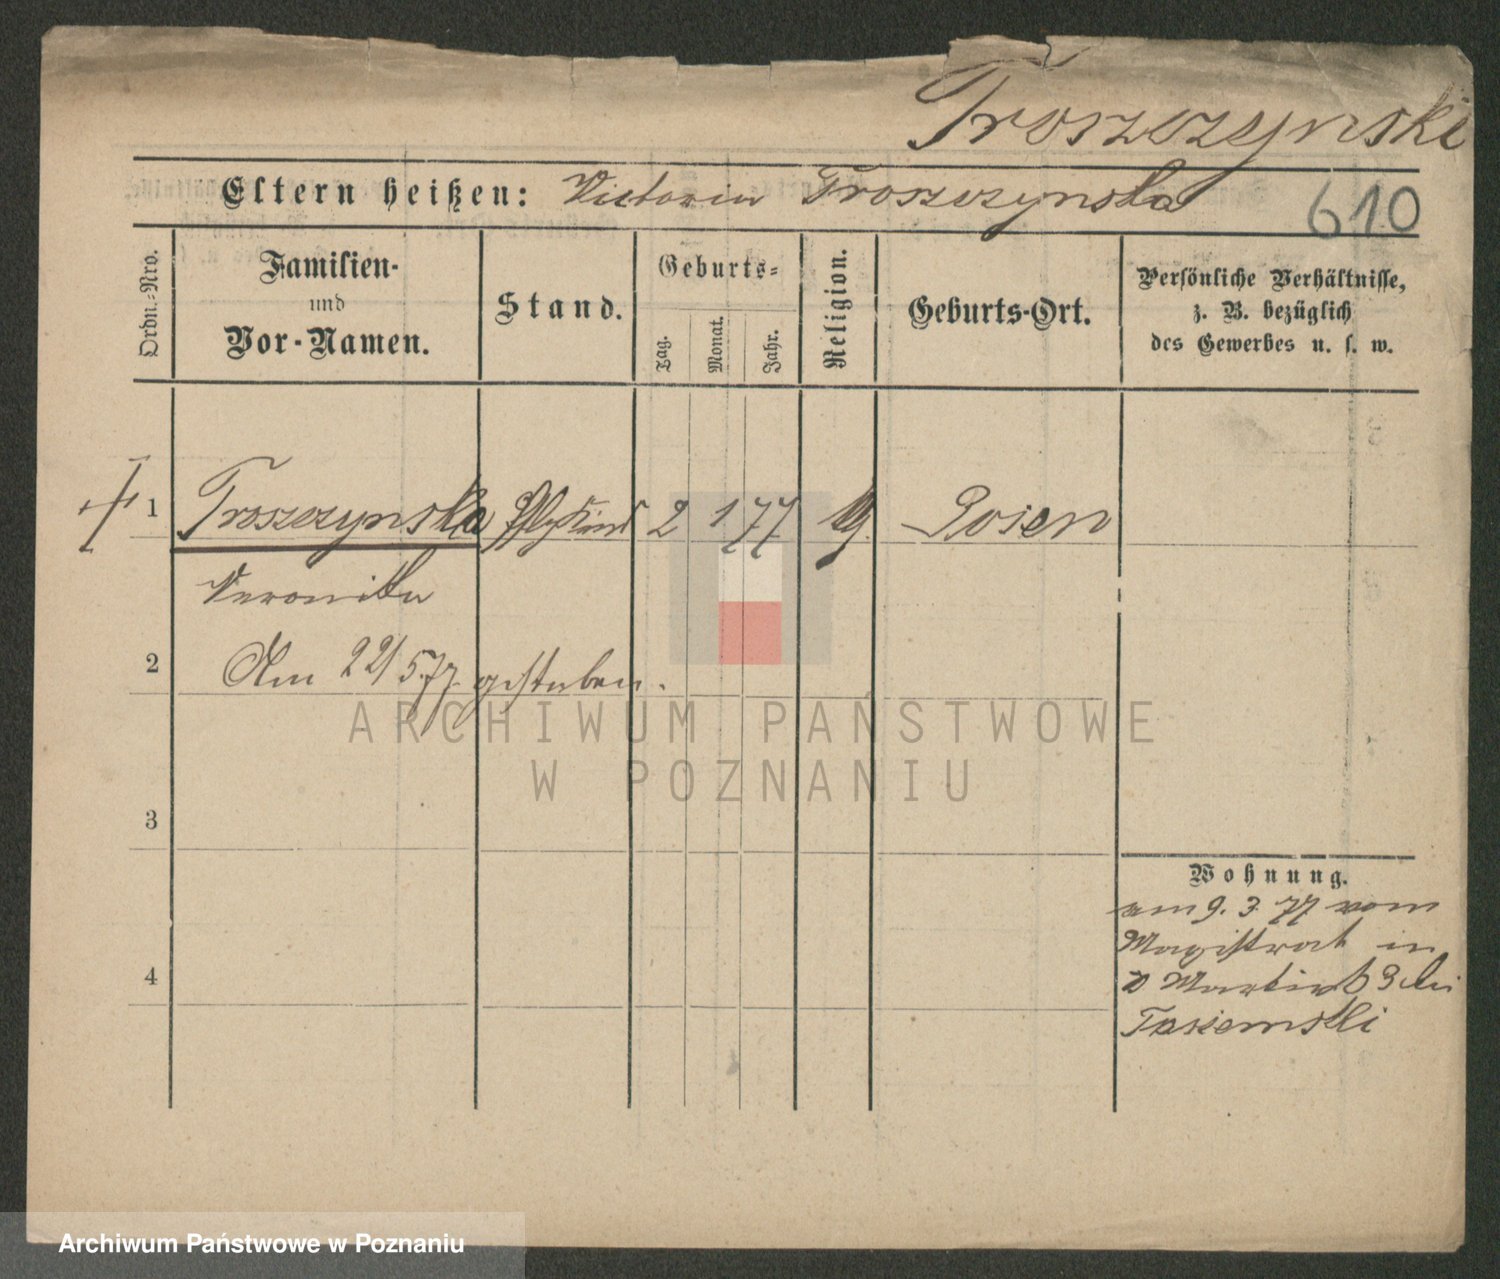 Troszczynski
Eltern heißen: Victoria Troszczynska
610
Ordn.-Nro.
Familien-
und
Vor-Namen.
Stand.
Geburts-
Tag.
Monat.
Jahr.
Religion.
Geburts-Ort.
Persönliche Verhältnisse,
z. B. bezüglich
des Gewerbes u. s. w.
1 Troszczynska Pflegkind 2 1 77 Posen
Veronika
2 Am 22/5.77. gestorben.
3
4
Wohnung.
am 9. 3. 77 vom
Magistrat in
Martin 63 bei
Tasiemski
ARCHIWUM PAŃSTWOWE
W POZNANIU
Archiwum Państwowe w Poznaniu